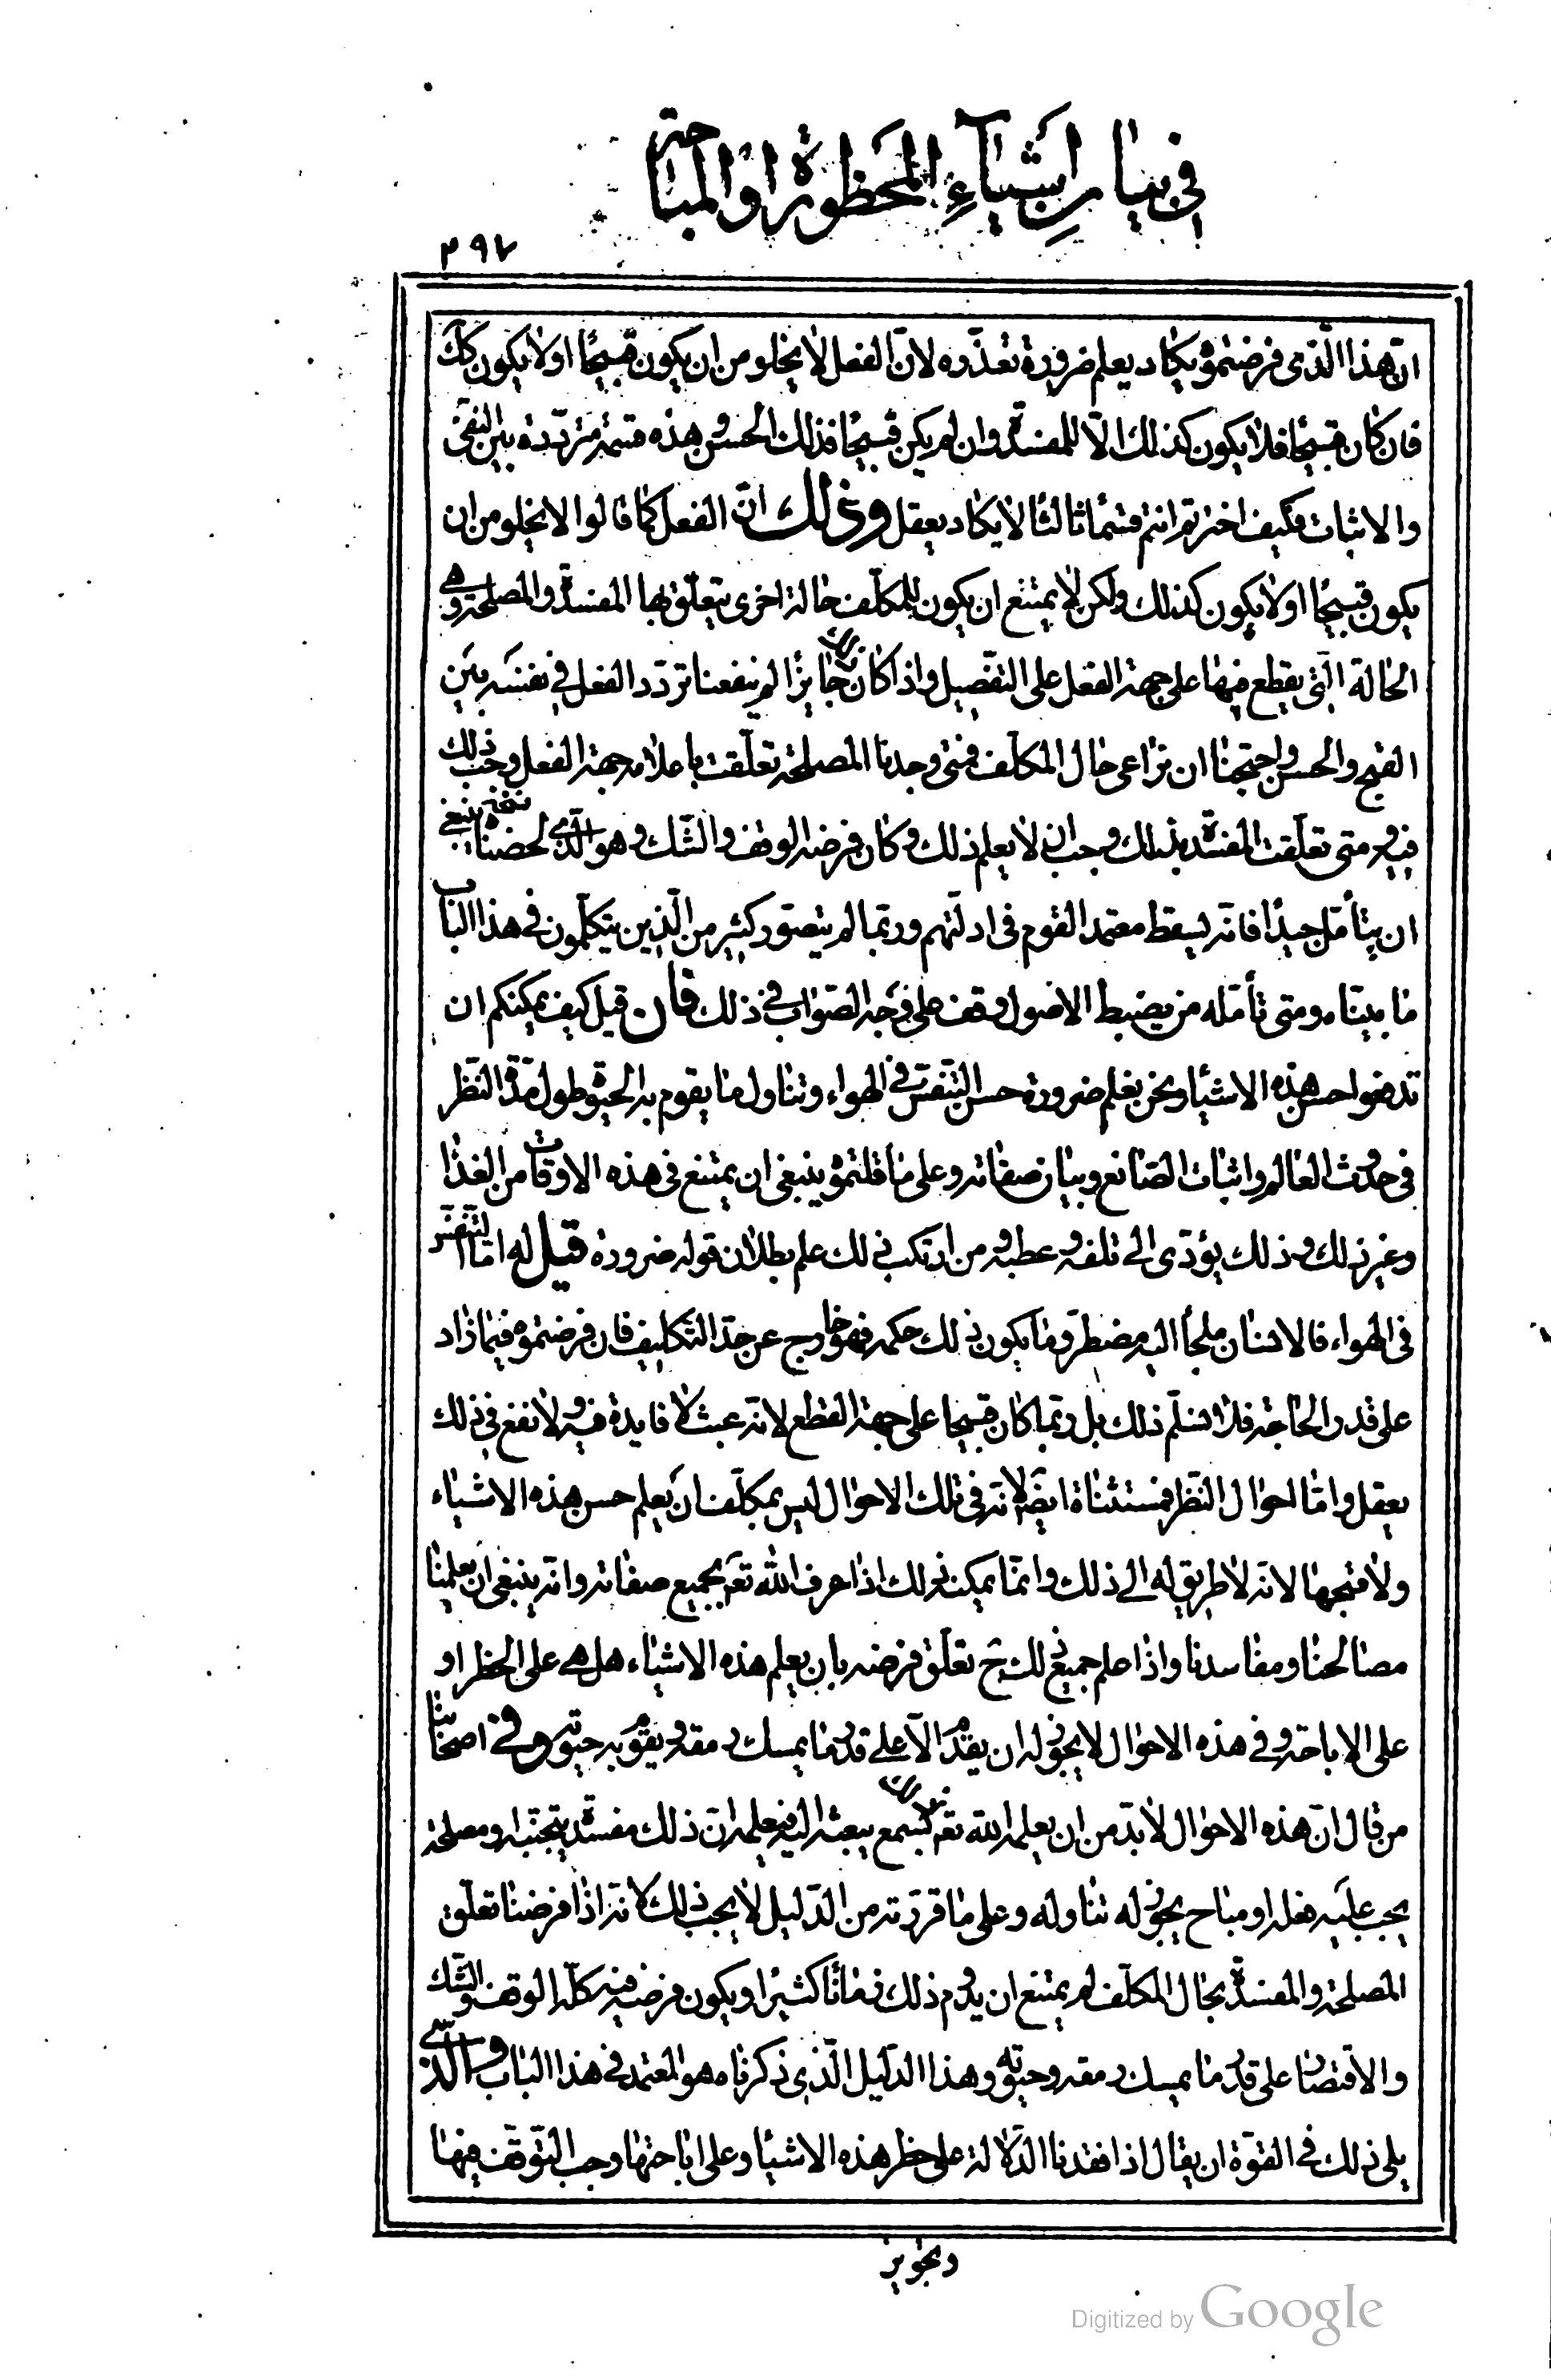 في بيان اشياء المحظورة او المباحة
٢٩٧
انّ هذا الّذى فرضتموه يكاد يعلم ضرورة تعذّره لانّ الفعل لا يخلو من ان يكون قبيحًا او لا يكون كك
فان كان قبيحًا فلا يكون كذلك الّا للمفسدة وان لم يكن قبيحًا فذلك الحسن وهذه قسمة متردّدة بين النّفى
والاثبات فكيف اخترتم انتم قسمًا ثالثا لا يكاد يعقل وذلك انّ الفعل كما قالوا لا يخلو من ان
يكون قبيحًا او لا يكون كذلك ولكن لا يمتنع ان يكون للمكلّف حالة اخرى يتعلّق بها المفسدة والمصلحة وهى
الحالة الّتى يقطع فيها على جهة الفعل على التفصيل واذا كان ذلك جايزًا لم ينفعنا تردّد الفعل فى نفسه بين
القبح والحسن واحتجنا ان نراعى حال المكلّف فمتى وجدنا المصلحة تعلّقت باعلامه جهة الفعل وجب ذلك
فيه ومتى تعلّقت المفسدة بذلك وجب ان لا يعلم ذلك وكان فرضه الوقف والشّك وهو الّذى لحضناه ينبغى
ان يتأمّل جيدًا فانّه يسقط معتمد القوم فى ادلّتهم وربّما لم يتصوّر كثير من الّذين يتكلّمون فى هذا الباب
ما بيّناه ومتى تأمّله من يضبط الاصول وقف على وجه الصّواب فى ذلك فان قيل كيف يمكنكم ان
تدفعوا حسن هذه الاشياء ونحن نعلم ضرورة حسن التّنفّس فى الهواء وتناول ما يقوم به الحيوة طول مدّة النّظر
فى حدوث العالم واثبات الصّانع وبيان صفاته وعلى ما قلتموه ينبغى ان يمتنع فى هذه الاوقات من الغذاء
وغير ذلك وذلك يؤدّى الى تلفه وعطبه ومن ارتكب ذلك علم بطلان قوله ضرورة قيل له امّا التّنفّس
فى الهواء فالانسان ملجأ اليه مضطرّ وما يكون ذلك حكمه فهو خارج عن حدّ التكليف فان فرضتموه فيما زاد
على قدر الحاجة فلا نسلّم ذلك بل ربّما كان قبيحا على جهة القطع لانّه عبث لا فايدة فيه ولا نفع فى ذلك
يعقل وامّا احوال النّظر فمستثناة ايضا لانّه فى تلك الاحوال ليس بمكلّف ان يعلم حسن هذه الاشياء
ولا قبحها لانّه لا طريق له الى ذلك وانّما يمكنه ذلك اذا عرف الله تعم بجميع صفاته وانّه ينبغى ان يعلمنا
مصالحنا ومفاسدنا واذا علم جميع ذلك ح تعلّق فرضه بان يعلم هذه الاشياء هل هى على الحظر او
على الاباحة وفى هذه الاحوال لا يجوز له ان يقدّم الّا على قدر ما يمسك رمقه ويقوم به حيوته وفى اصحابنا
من قال انّ هذه الاحوال لا بدّ من ان يعلم الله تعم ذلك بسمع يبعثه اليه فيعلمه انّ ذلك مفسدة يتجنّبه او مصلحة
يجب عليه فعله او مباح يجوز له تناوله وعلى ما قررته من الدّليل لا يجب ذلك لانّه اذا فرضنا تعلّق
المصلحة والمفسدة بحال المكلّف لم يمتنع ان يدوم ذلك زمانًا كثيرًا ويكون فرضه فيه كلّه الوقف والشّك
والاقتصار على قدر ما يمسك رمقه وحيوته وهذا الدّليل الّذى ذكرناه هو المعتمد فى هذا الباب والّذى
يلى ذلك فى القوّة ان يقال اذا فقدنا الدّلالة على حظر هذه الاشياء وعلى اباحتها وجب التّوقّف فيها
وتجويز
Digitized by Google